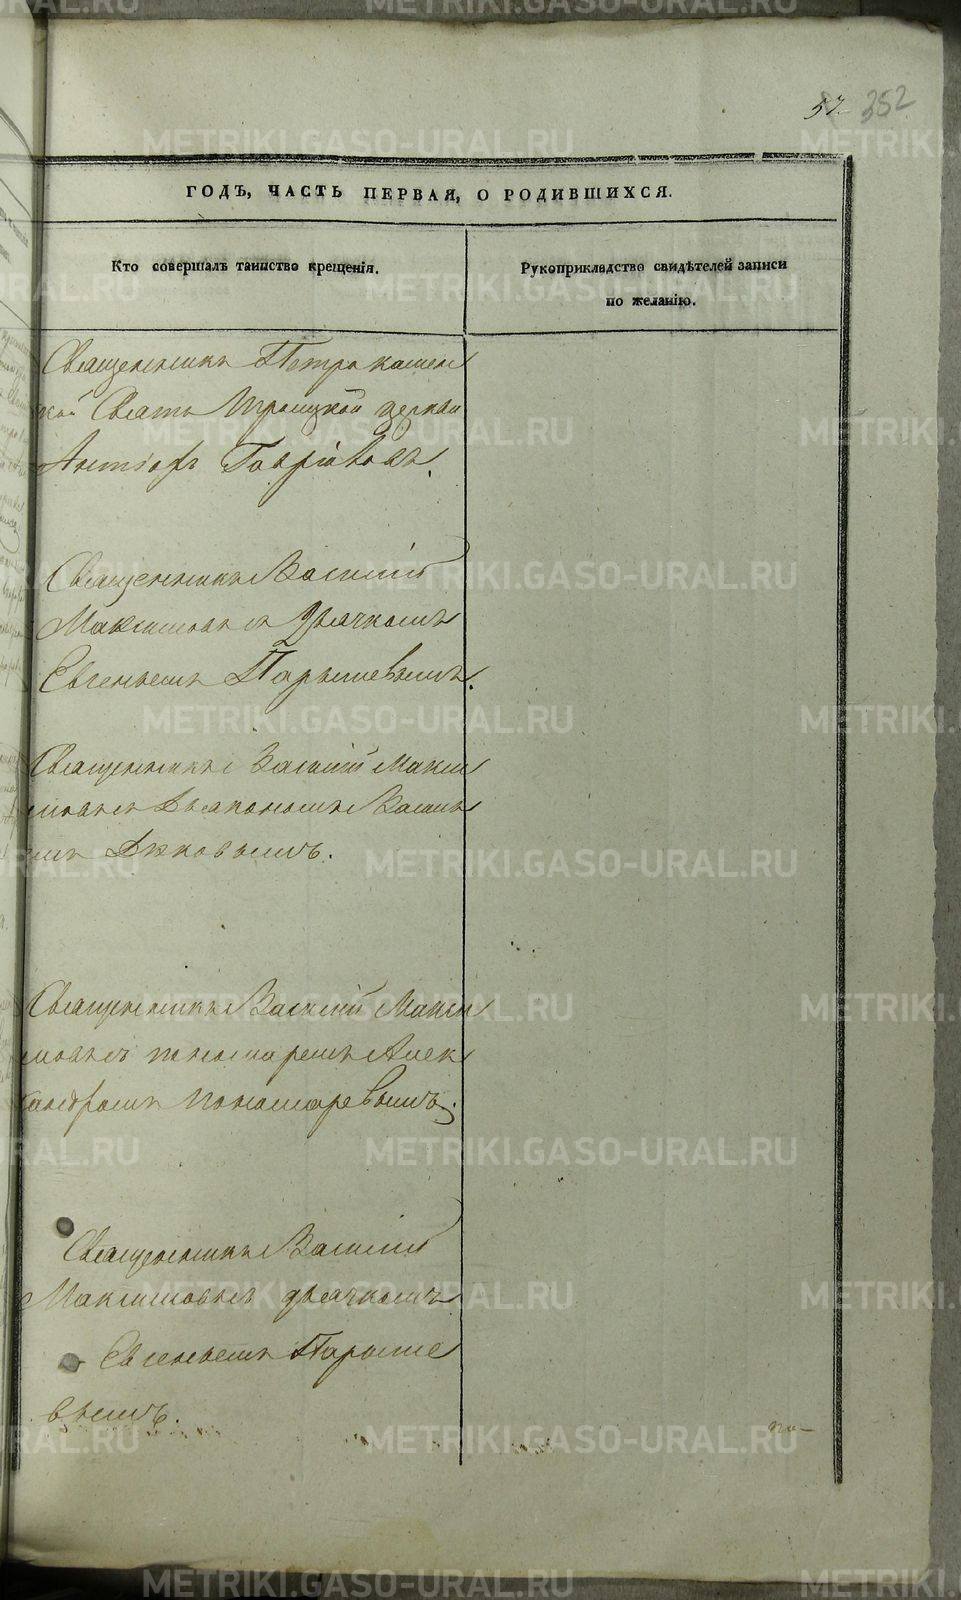 57. 352
ГОДЪ, ЧАСТЬ ПЕРВАЯ, О РОДИВШИХСЯ.
Кто совершалъ таинство крещенія.
Рукоприкладство свидѣтелей записи
по желанію.
Священникъ Петрокамен
ской Свято Троицкой церкви
Гаврііловъ
Священникъ Василій
Максимовъ съ Дьячкомъ
Евгеньемъ Парышевымъ.
Священникъ Василій Макси
мовъ съ Дьякономъ Васи
емъ
Священникъ Василій Макси
мовъ съ пономаремъ Алек
сандромъ Пономаревымъ.
Священникъ Василій
Максимовъ съ дьячкомъ
Евгеньемъ Парыше
вымъ.
по-
METRIKI.GASO-URAL.RU